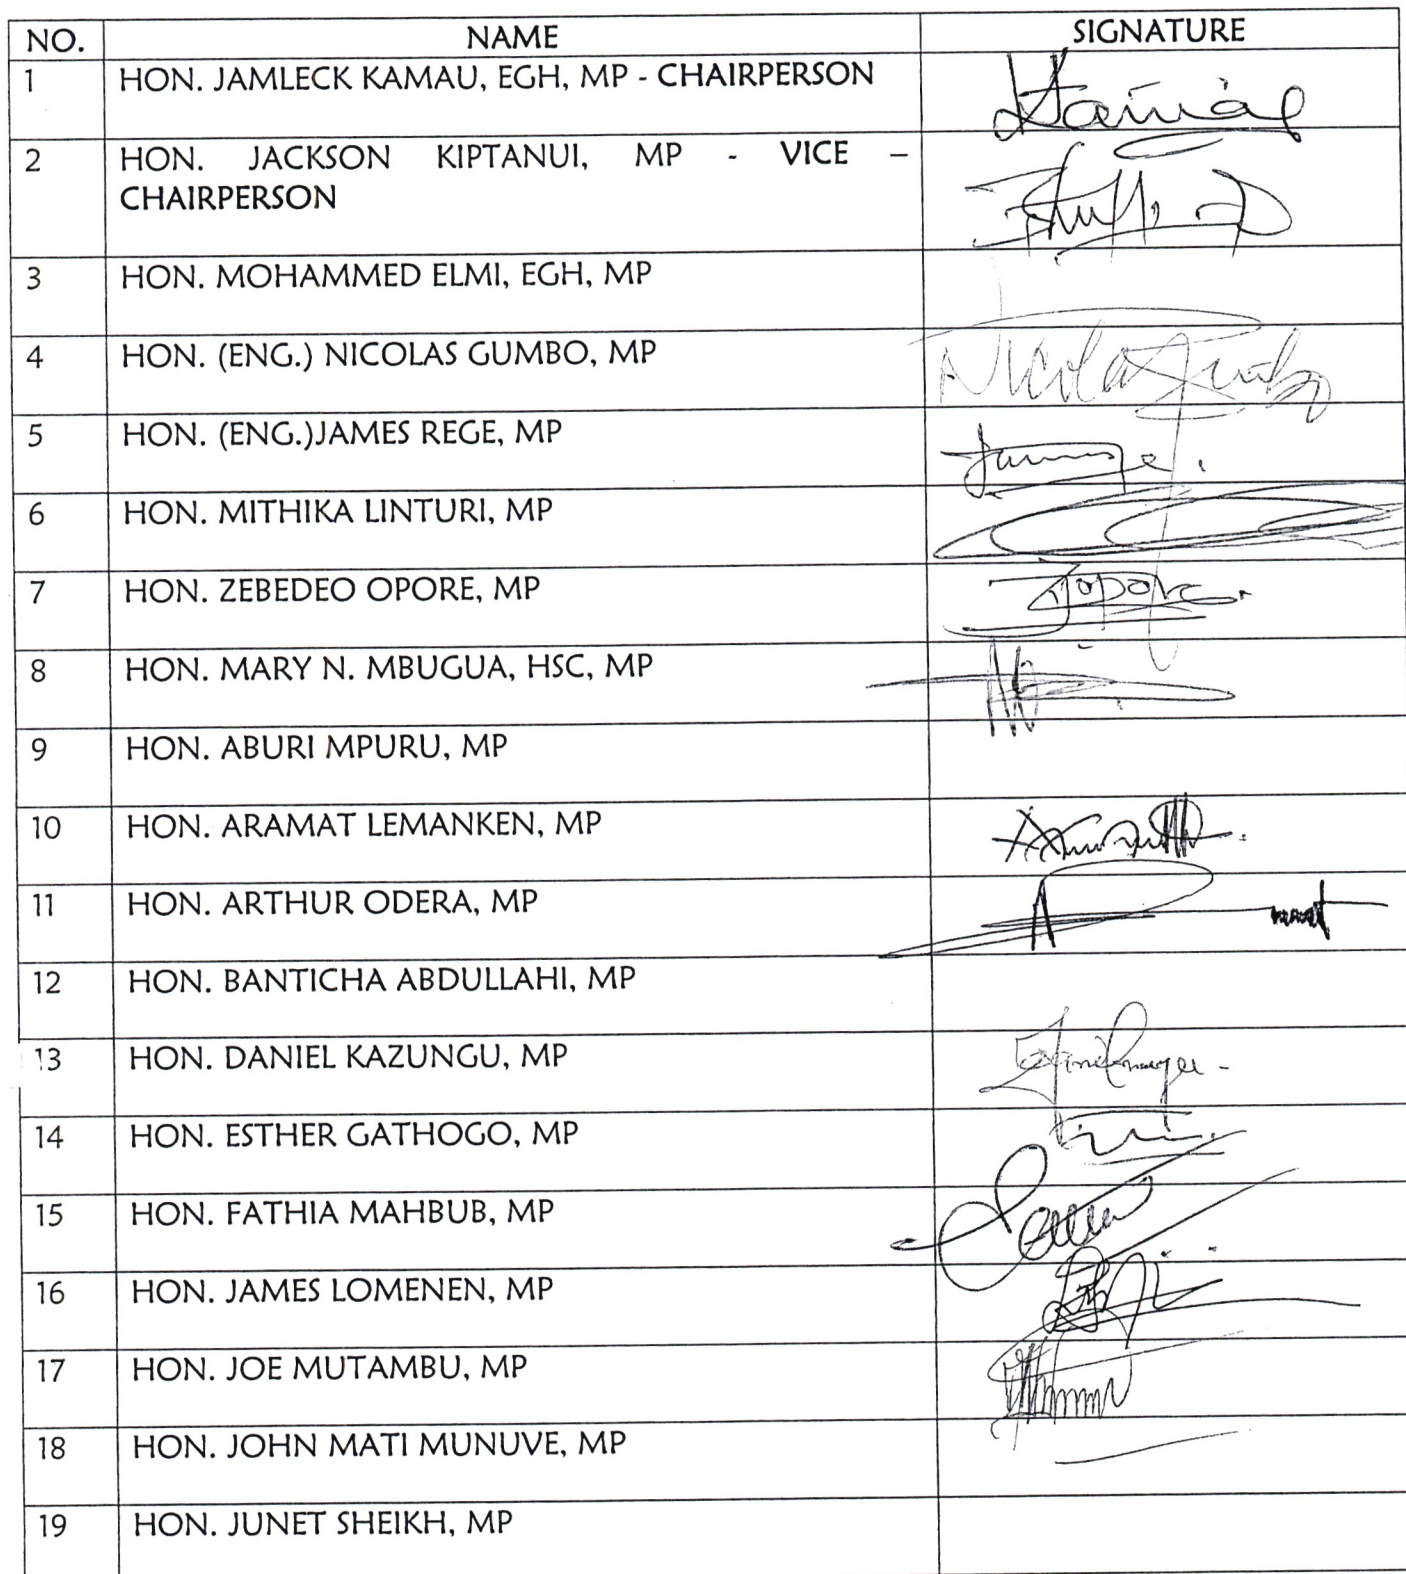 NO. NAME SIGNATURE
1 HON. JAMLECK KAMAU, EGH, MP - CHAIRPERSON
2 HON. JACKSON KIPTANUI, MP - VICE –
CHAIRPERSON
3 HON. MOHAMMED ELMI, EGH, MP
4 HON. (ENG.) NICOLAS GUMBO, MP Nicolas Gumbo
5 HON. (ENG.)JAMES REGE, MP
6 HON. MITHIKA LINTURI, MP
7 HON. ZEBEDEO OPORE, MP
8 HON. MARY N. MBUGUA, HSC, MP
9 HON. ABURI MPURU, MP
10 HON. ARAMAT LEMANKEN, MP
11 HON. ARTHUR ODERA, MP
12 HON. BANTICHA ABDULLAHI, MP
13 HON. DANIEL KAZUNGU, MP
14 HON. ESTHER GATHOGO, MP
15 HON. FATHIA MAHBUB, MP
16 HON. JAMES LOMENEN, MP
17 HON. JOE MUTAMBU, MP
18 HON. JOHN MATI MUNUVE, MP
19 HON. JUNET SHEIKH, MP